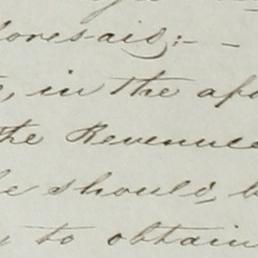 foresaid:- -
, in the afo
the Revenue
he should, b
to obtain